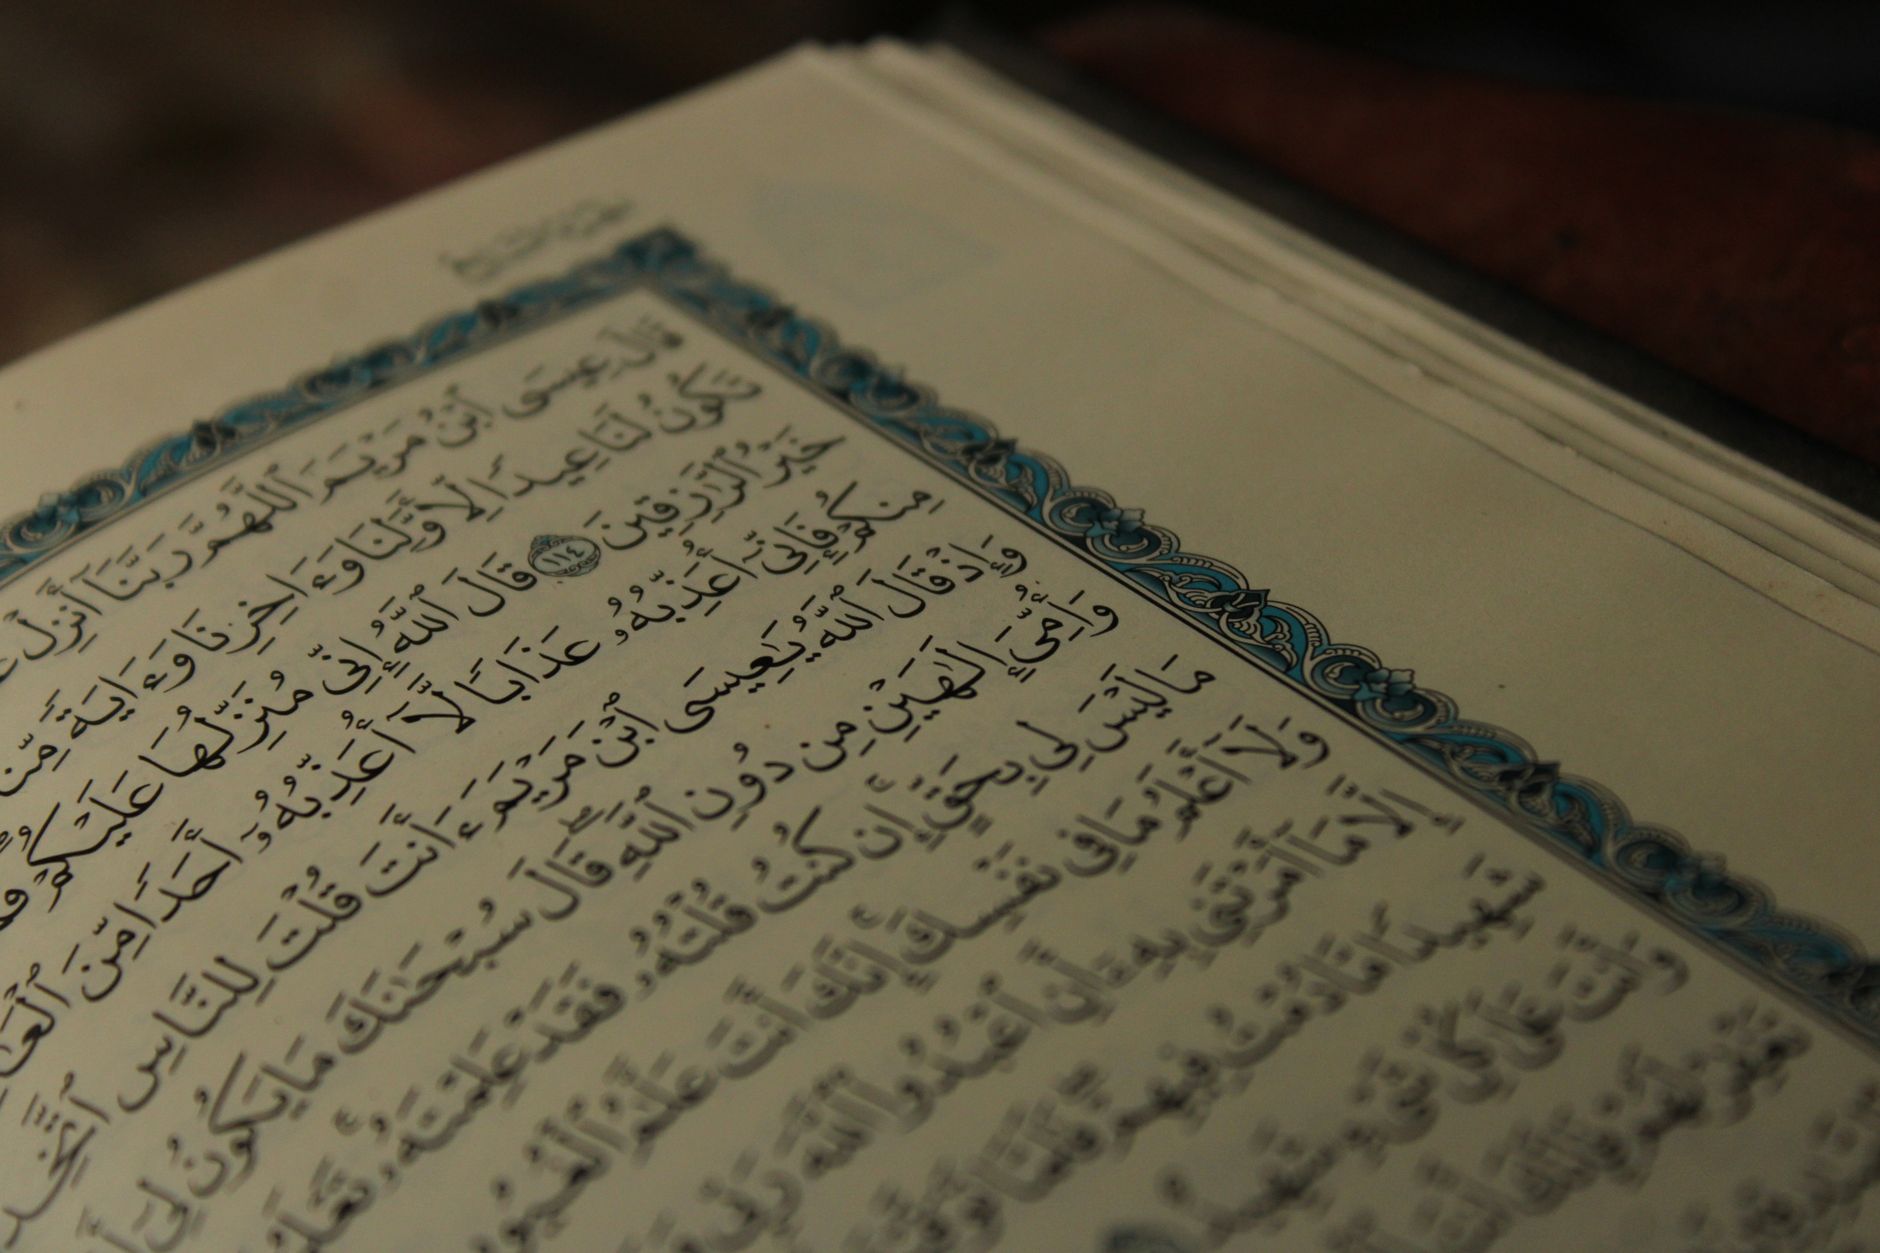 قَالَ عِيسَى ٱبْنُ مَرْيَمَ ٱللَّهُمَّ رَبَّنَآ أَنزِلْ
تَكُونُ لَنَا عِيدًا لِّأَوَّلِنَا وَءَاخِرِنَا وَءَايَةً مِّن
خَيْرُ ٱلرَّٰزِقِينَ ١١٤ قَالَ ٱللَّهُ إِنِّى مُنَزِّلُهَا عَلَيْكُمْ
مِنكُمْ فَإِنِّىٓ أُعَذِّبُهُۥ عَذَابًا لَّآ أُعَذِّبُهُۥٓ أَحَدًا مِّنَ
وَإِذْ قَالَ ٱللَّهُ يَٰعِيسَى ٱبْنَ مَرْيَمَ ءَأَنتَ قُلْتَ لِلنَّاسِ
وَأُمِّىَ إِلَٰهَيْنِ مِن دُونِ ٱللَّهِ قَالَ سُبْحَٰنَكَ مَا يَكُونُ لِىٓ
مَا لَيْسَ لِى بِحَقٍّ إِن كُنتُ قُلْتُهُۥ فَقَدْ عَلِمْتَهُۥ
وَلَآ أَعْلَمُ مَا فِى نَفْسِكَ إِنَّكَ أَنتَ عَلَّٰمُ
إِلَّا مَآ أَمَرْتَنِى بِهِۦٓ أَنِ ٱعْبُدُوا۟ ٱللَّهَ رَبِّى
شَهِيدًا مَّا دُمْتُ فِيهِمْ فَلَمَّا
وَأَنتَ عَلَىٰ كُلِّ شَىْءٍ شَهِيدٌ